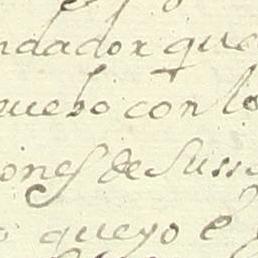 ndador que
uebo con lo
ones de Suss
o queyo é